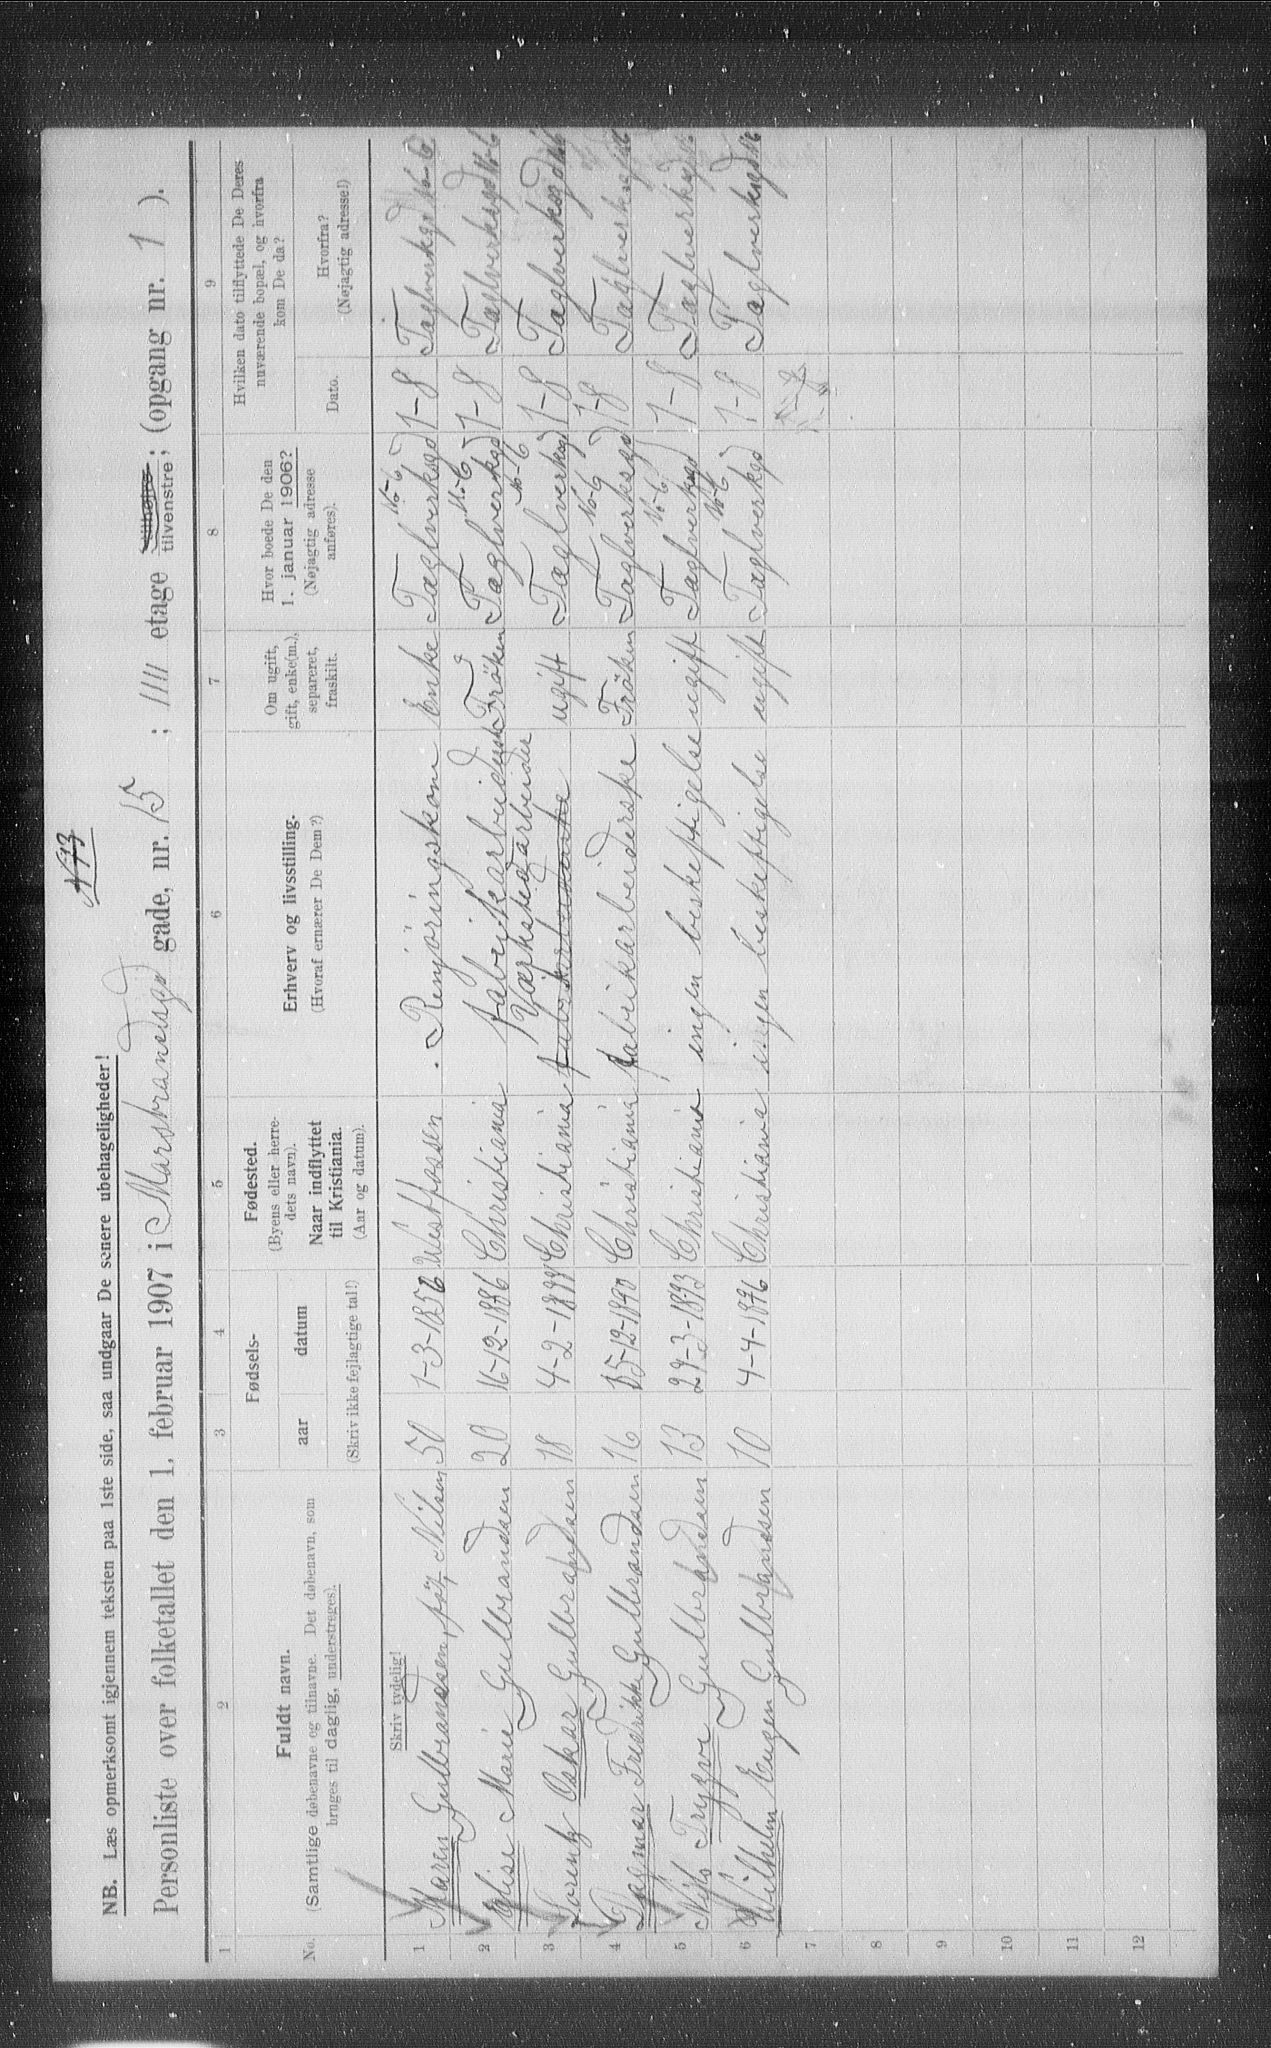 NB. Læs opmerksomt igjennem teksten paa 1ste side, saa undgaar De senere ubehageligheder!
Personliste over folketallet den 1. februar 1907 i Marsbrandsgd gade, nr. 15 ; IIII etage tilhøire tilvenstre; (opgang nr. 1 ).
1 2 3 4 5 6 7 8 9
No.
Fuldt navn.
(Samtlige døbenavne og tilnavne. Det døbenavn, som
bruges til daglig, understreges).
Fødsels-
aar datum
(Skriv ikke fejlagtige tal!)
Fødested.
(Byens eller herre-
dets navn).
Naar indflyttet
til Kristiania.
(Aar og datum).
Erhverv og livsstilling.
(Hvoraf ernærer De Dem?)
Om ugift,
gift, enke(m.),
separeret,
fraskilt.
Hvor boede De den
1. januar 1906?
(Nøjagtig adresse
anføres).
Hvilken dato tilflyttede De Deres
nuværende bopæl, og hvorfra
kom De da?
Dato.
Hvorfra?
(Nøjagtig adresse!)
Skriv tydelig!
1 Maren Gulbrandsen, føz Nilsen 50 1-3-1856 Westfossen Renjöringskone Enke Taglverksgd No-6 1-8 Taglverksgd No-6
2 Elise Marie Gulbrandsen 20 16-12-1886 Christiania fabrikarbeiderske Fröken Taglverksgd No-6 1-8 Taglverksgd No-6
3 Lorentz Oskar Gulbrandsen 18 4-2-1889 Christiania Værkstedarbeider ugift Taglverksgd No-6 1-8 Taglverksgd No6
4 Dagmar Fredrikke Gulbrandsen 16 15-12-1890 Christiania fabrikarbeiderske Fröken Taglverksgd No-6 1-8 Taglverksgd No6
5 Nils Trygve Gulbrandsen 13 29-3-1893 Christiania ingen beskeftigelse ugift Taglverksgd No-6 1-8 Taglverksgd No6
6 Wilhelm Eugen Gulbrandsen 10 4-4-1896 Christiania ingen beskeftigelse ugift Taglverksgd No-6 1-8 Taglverksgd No6
7
8
9
10
11
12